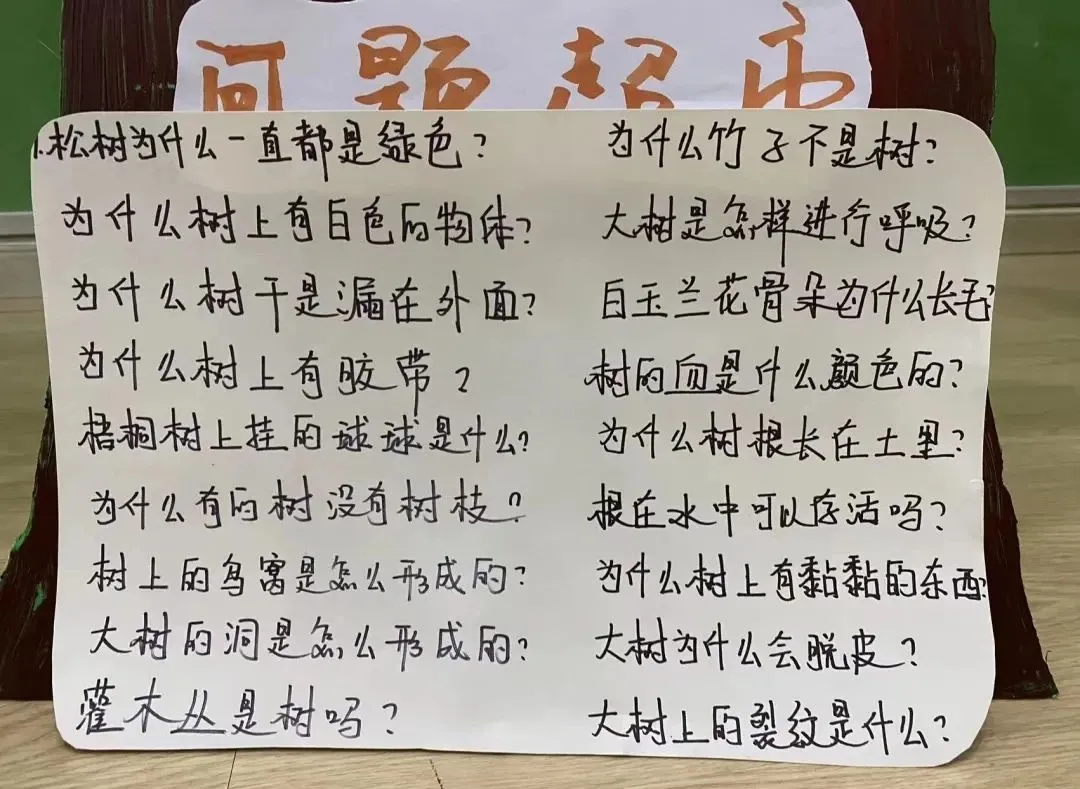 问题超市
1.松树为什么一直都是绿色?
为什么树上有白色的物体?
为什么树干是漏在外面?
为什么树上有胶带?
梧桐树上挂的球球是什么?
为什么有的树没有树枝?
树上的鸟窝是怎么形成的?
大树的洞是怎么形成的?
灌木丛是树吗?
为什么竹子不是树?
大树是怎样进行呼吸?
白玉兰花骨朵为什么长毛?
树的血是什么颜色的?
为什么树根长在土里?
根在水中可以存活吗?
为什么树上有黏黏的东西?
大树为什么会脱皮?
大树上的裂纹是什么?